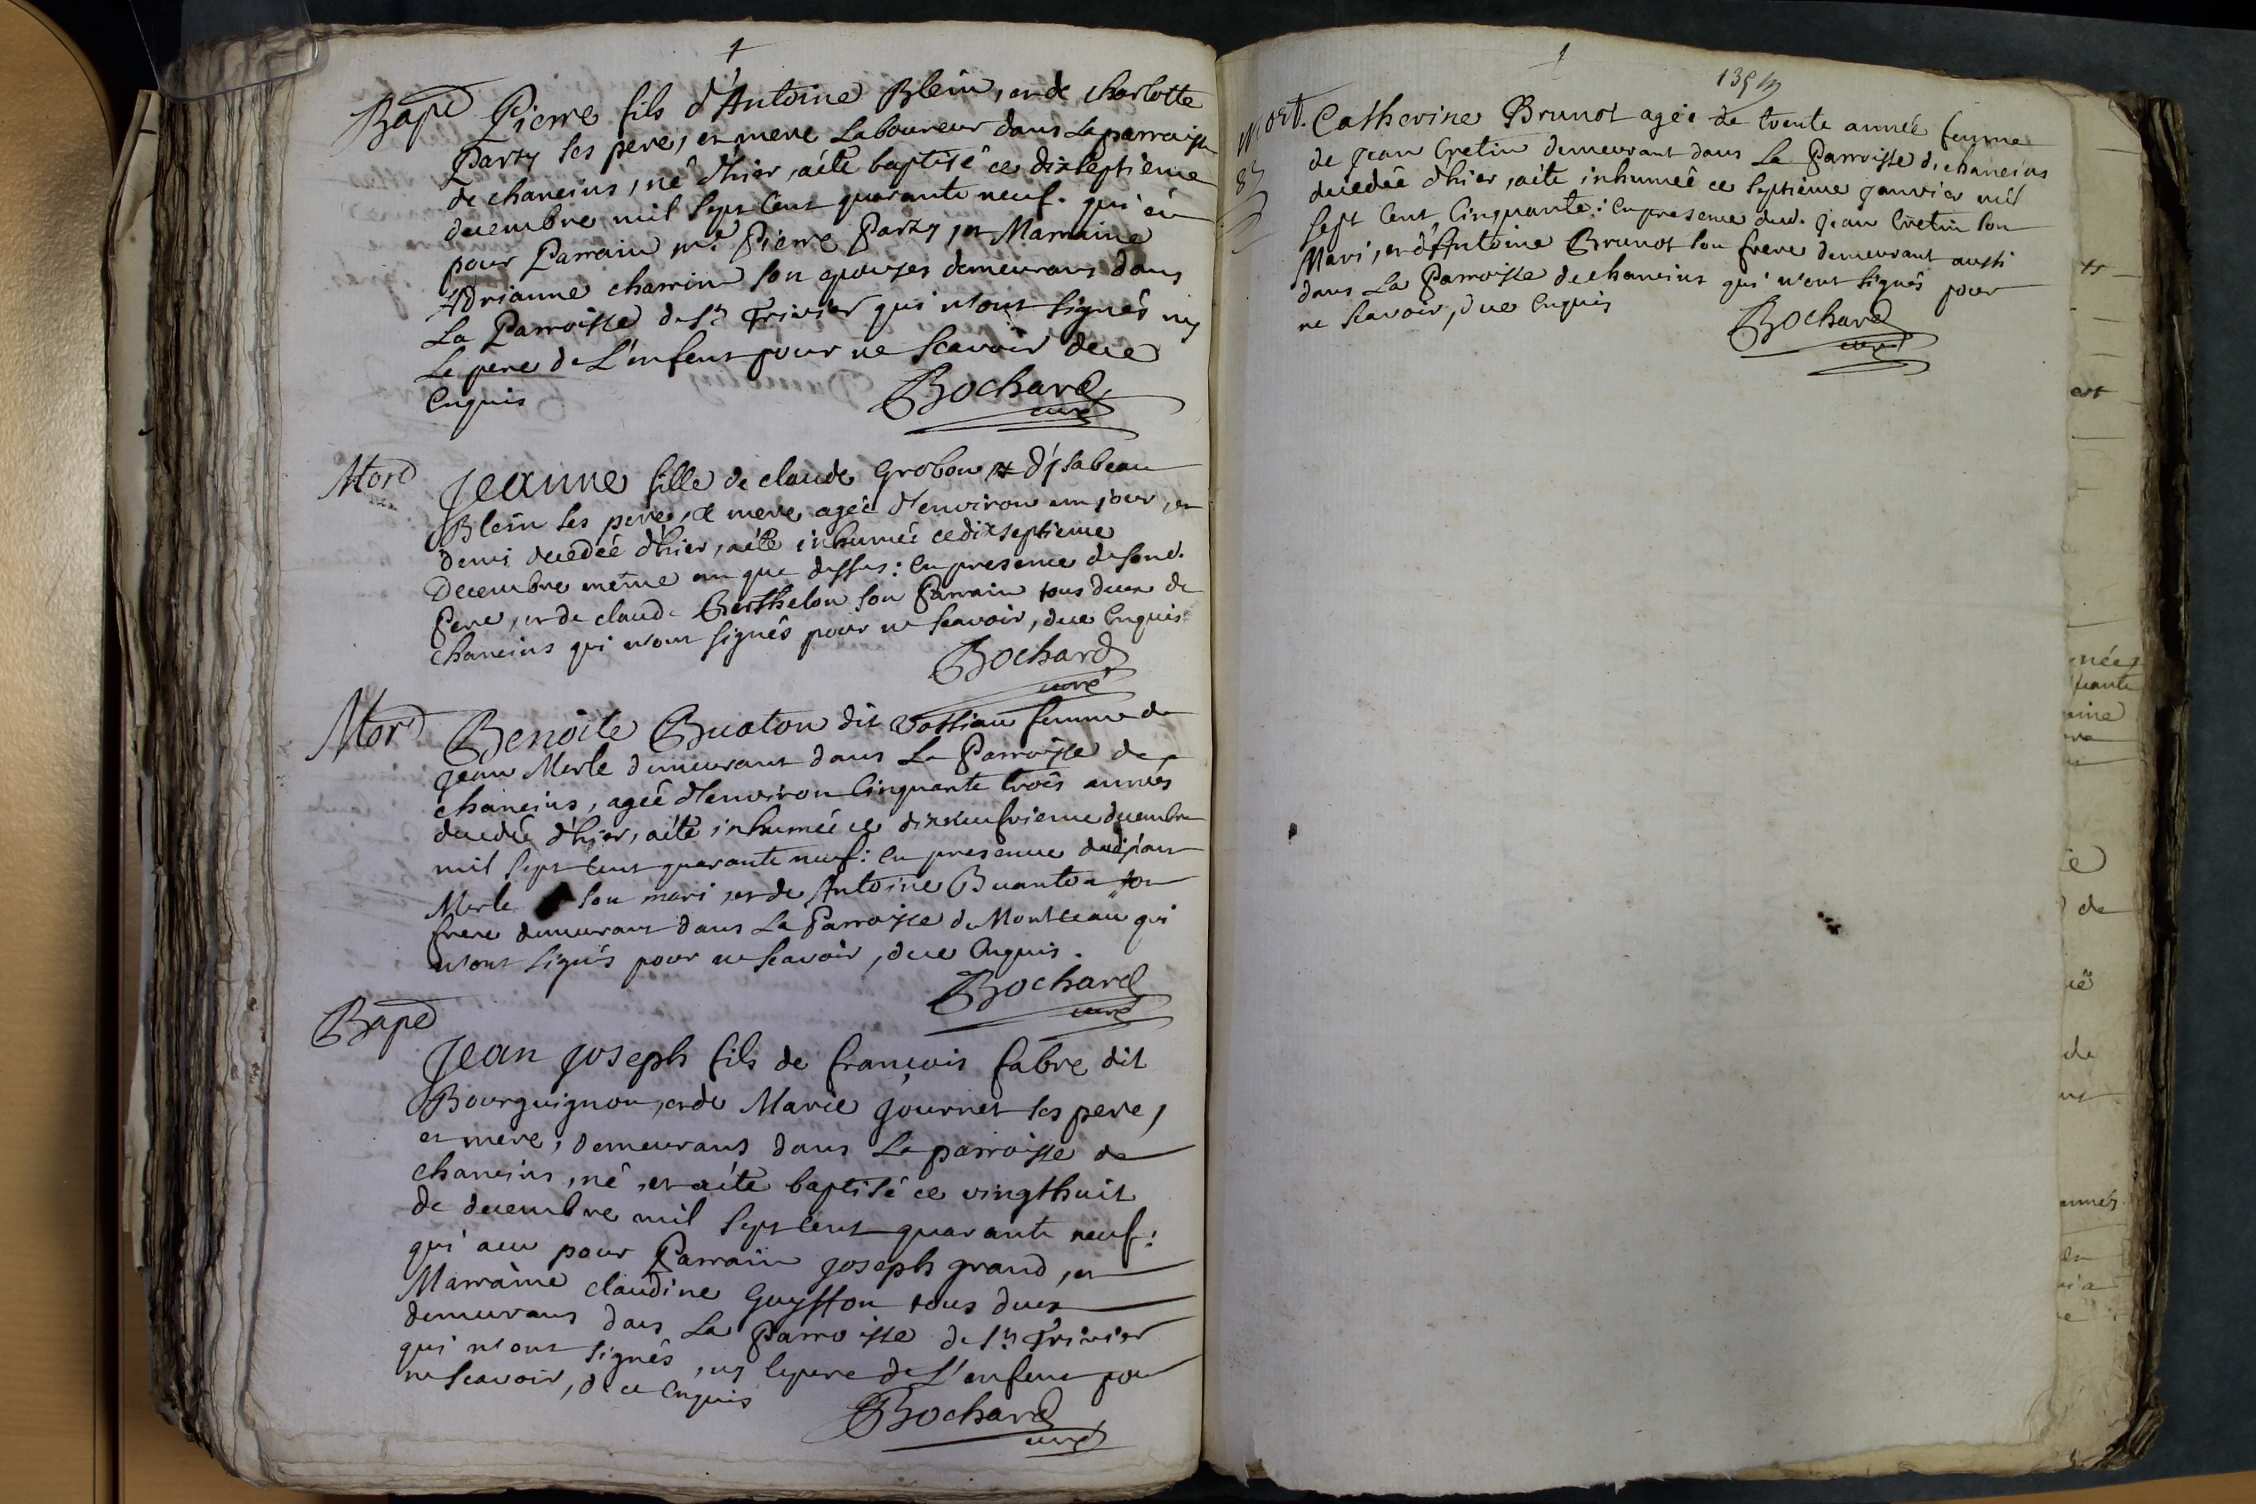 Bapt Pierre fils d'Antoine Blein, et de charlotte
Party ses pere, et mere Laboureur dans La parroisse
de chaneins, né d'hier, aété baptisé ce dixseptieme
decembre mil sept Cent quarante neuf. qui a eu
pour Parrain me Pierre Party, et Marraine
Adrianne charrin son epouses demeurans dans
La Parroisse de St Trivier qui n'ont signés ny
Le pere de L'enfent pour ne scavoir de ce
Enquis
Bochard
curé
Mort Jeanne fille de claude Grobon et d'ysabeau
Blein ses pere, et mere agée d'environ un jour, et
demi decedée d'hier, aété inhumée ce dixseptieme
Decembre même an que dessus: En presence de sond.
Pere, et de claude Berthelon son Parrain tous deux de
chaneins qui n'ont signés pour ne scavoir, de ce Enquis
Bochard
curé
Mort Benoite Buaton dit vassiau femme de
Jean Merle demeurant dans La Parroisse de
chaneins, agée d'environ Cinquante trois années
decedée d'hier, aété inhumée ce dixneufvieme decembre
mil sept Cent quarante neuf: En presence dud. jean
Merle son mari, et de Antoine Buanton son
frere demeurant dans La Parroisse de Montceau qui
n'ont signés pour ne scavoir, de ce Enquis.
Bochard
curé
Bapt
Jean joseph fils de françois fabre dit
Bourguignon, et de Marie Journet ses pere,
et mere, demeurans dans La parroisse de
chaneins, né, et aété baptisé ce vingthuit
de decembre mil sept Cent quarante neuf:
qui aeu pour Parrain joseph grand, et
Marraine claudine Guysson tous deux
demeurans dans La Parroisse de St Trivier
qui n'ont signés, ny le pere de L'enfent pour
ne scavoir, de ce Enquis
Bochard
curé
Mort. Catherine Brunot agée de trente année femme
de jean Cretin demeurant dans La Parroisse de chaneins
decedée d'hier, aété inhumée ce septieme janvier mil
sept Cent Cinquante: En presence dud. jean Cretin son
Mari, et d'Antoine Brunot son frere demeurant aussi
dans La Parroisse de chaneins qui n'ont signés pour
ne scavoir, de ce Enquis
Bochard
curé